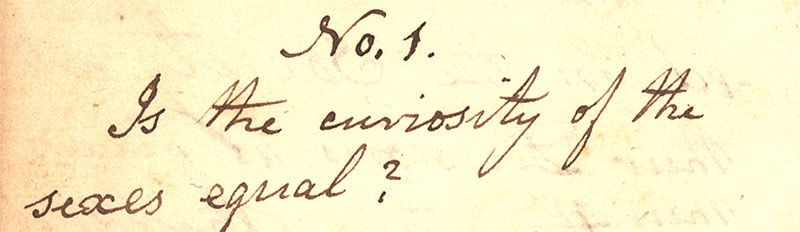 No. 1.
Is the curiosity of the
sexes equal?